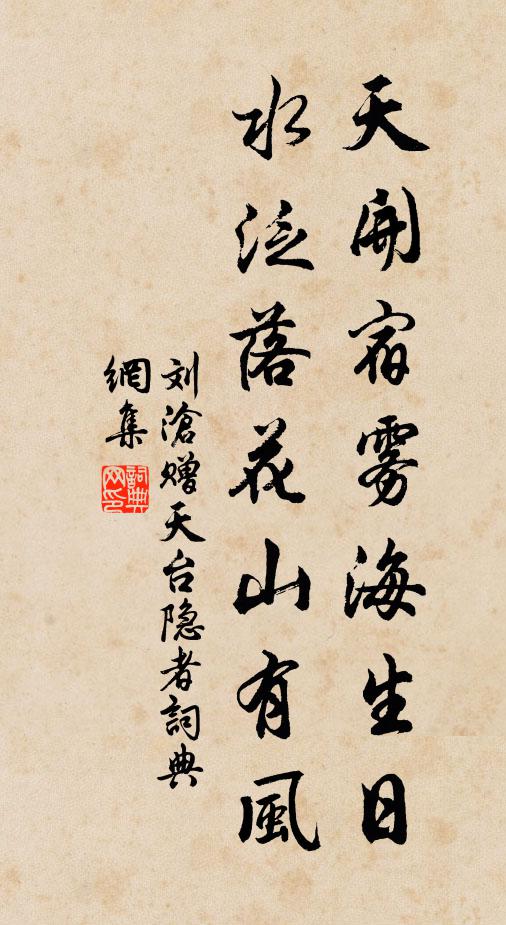 天開宿雾海生日
水泛落花山有風
刘滄赠天台隐者詞典
網集
詞典
网印